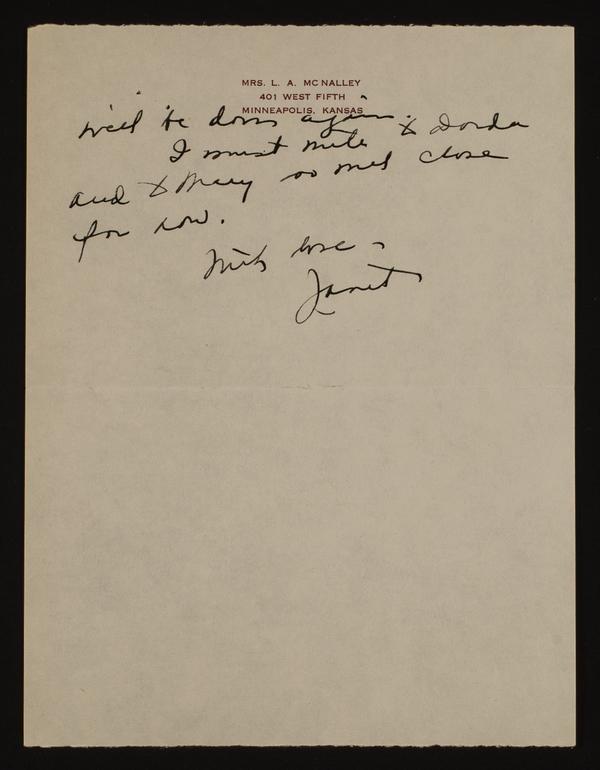 MRS. L. A. MCNALLEY
401 WEST FIFTH
MINNEAPOLIS, KANSAS
we'll be down again.
I must write to Dorda
and to Mary so must close
for now.
With love -
Janet